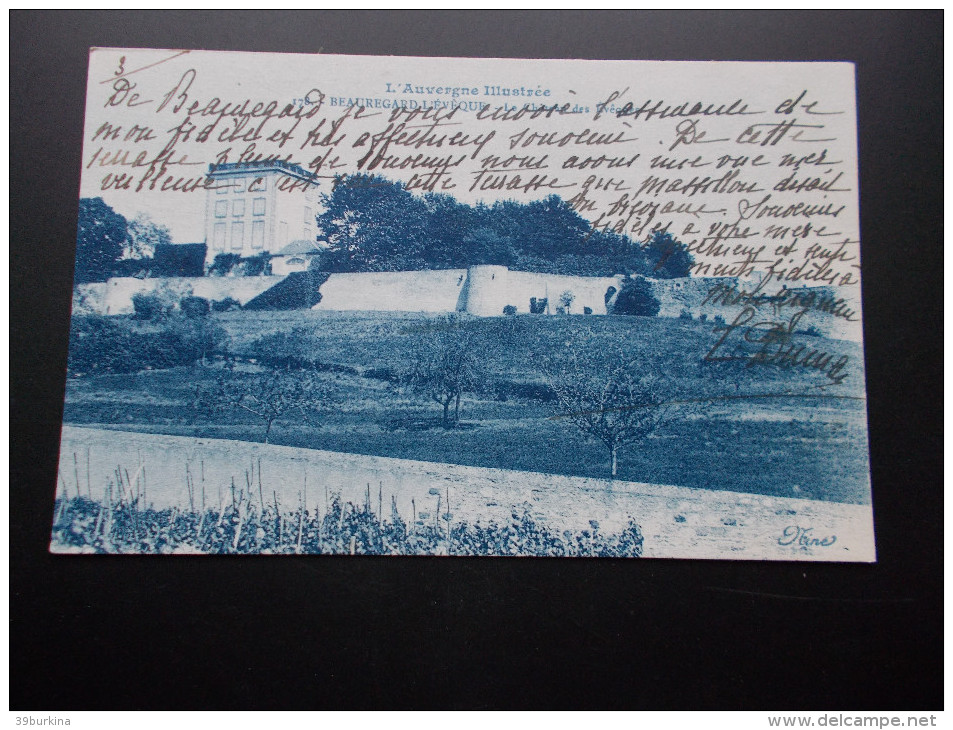 3
L'Auvergne Illustrée
178. BEAUREGARD-L'ÉVÊQUE - Le Château des Évêques
De Beauregard je vous envoie l'assurance de
mon fidèle et très affectueux souvenir. De cette
terrasse pleine de souvenirs nous avons une vue mer
veilleuse c'est cette terrasse que Massillon disait
son bréviaire. Souvenirs
fidèles à votre mère
et senti
ments fidèles à
Nère
39burkina
www.delcampe.net